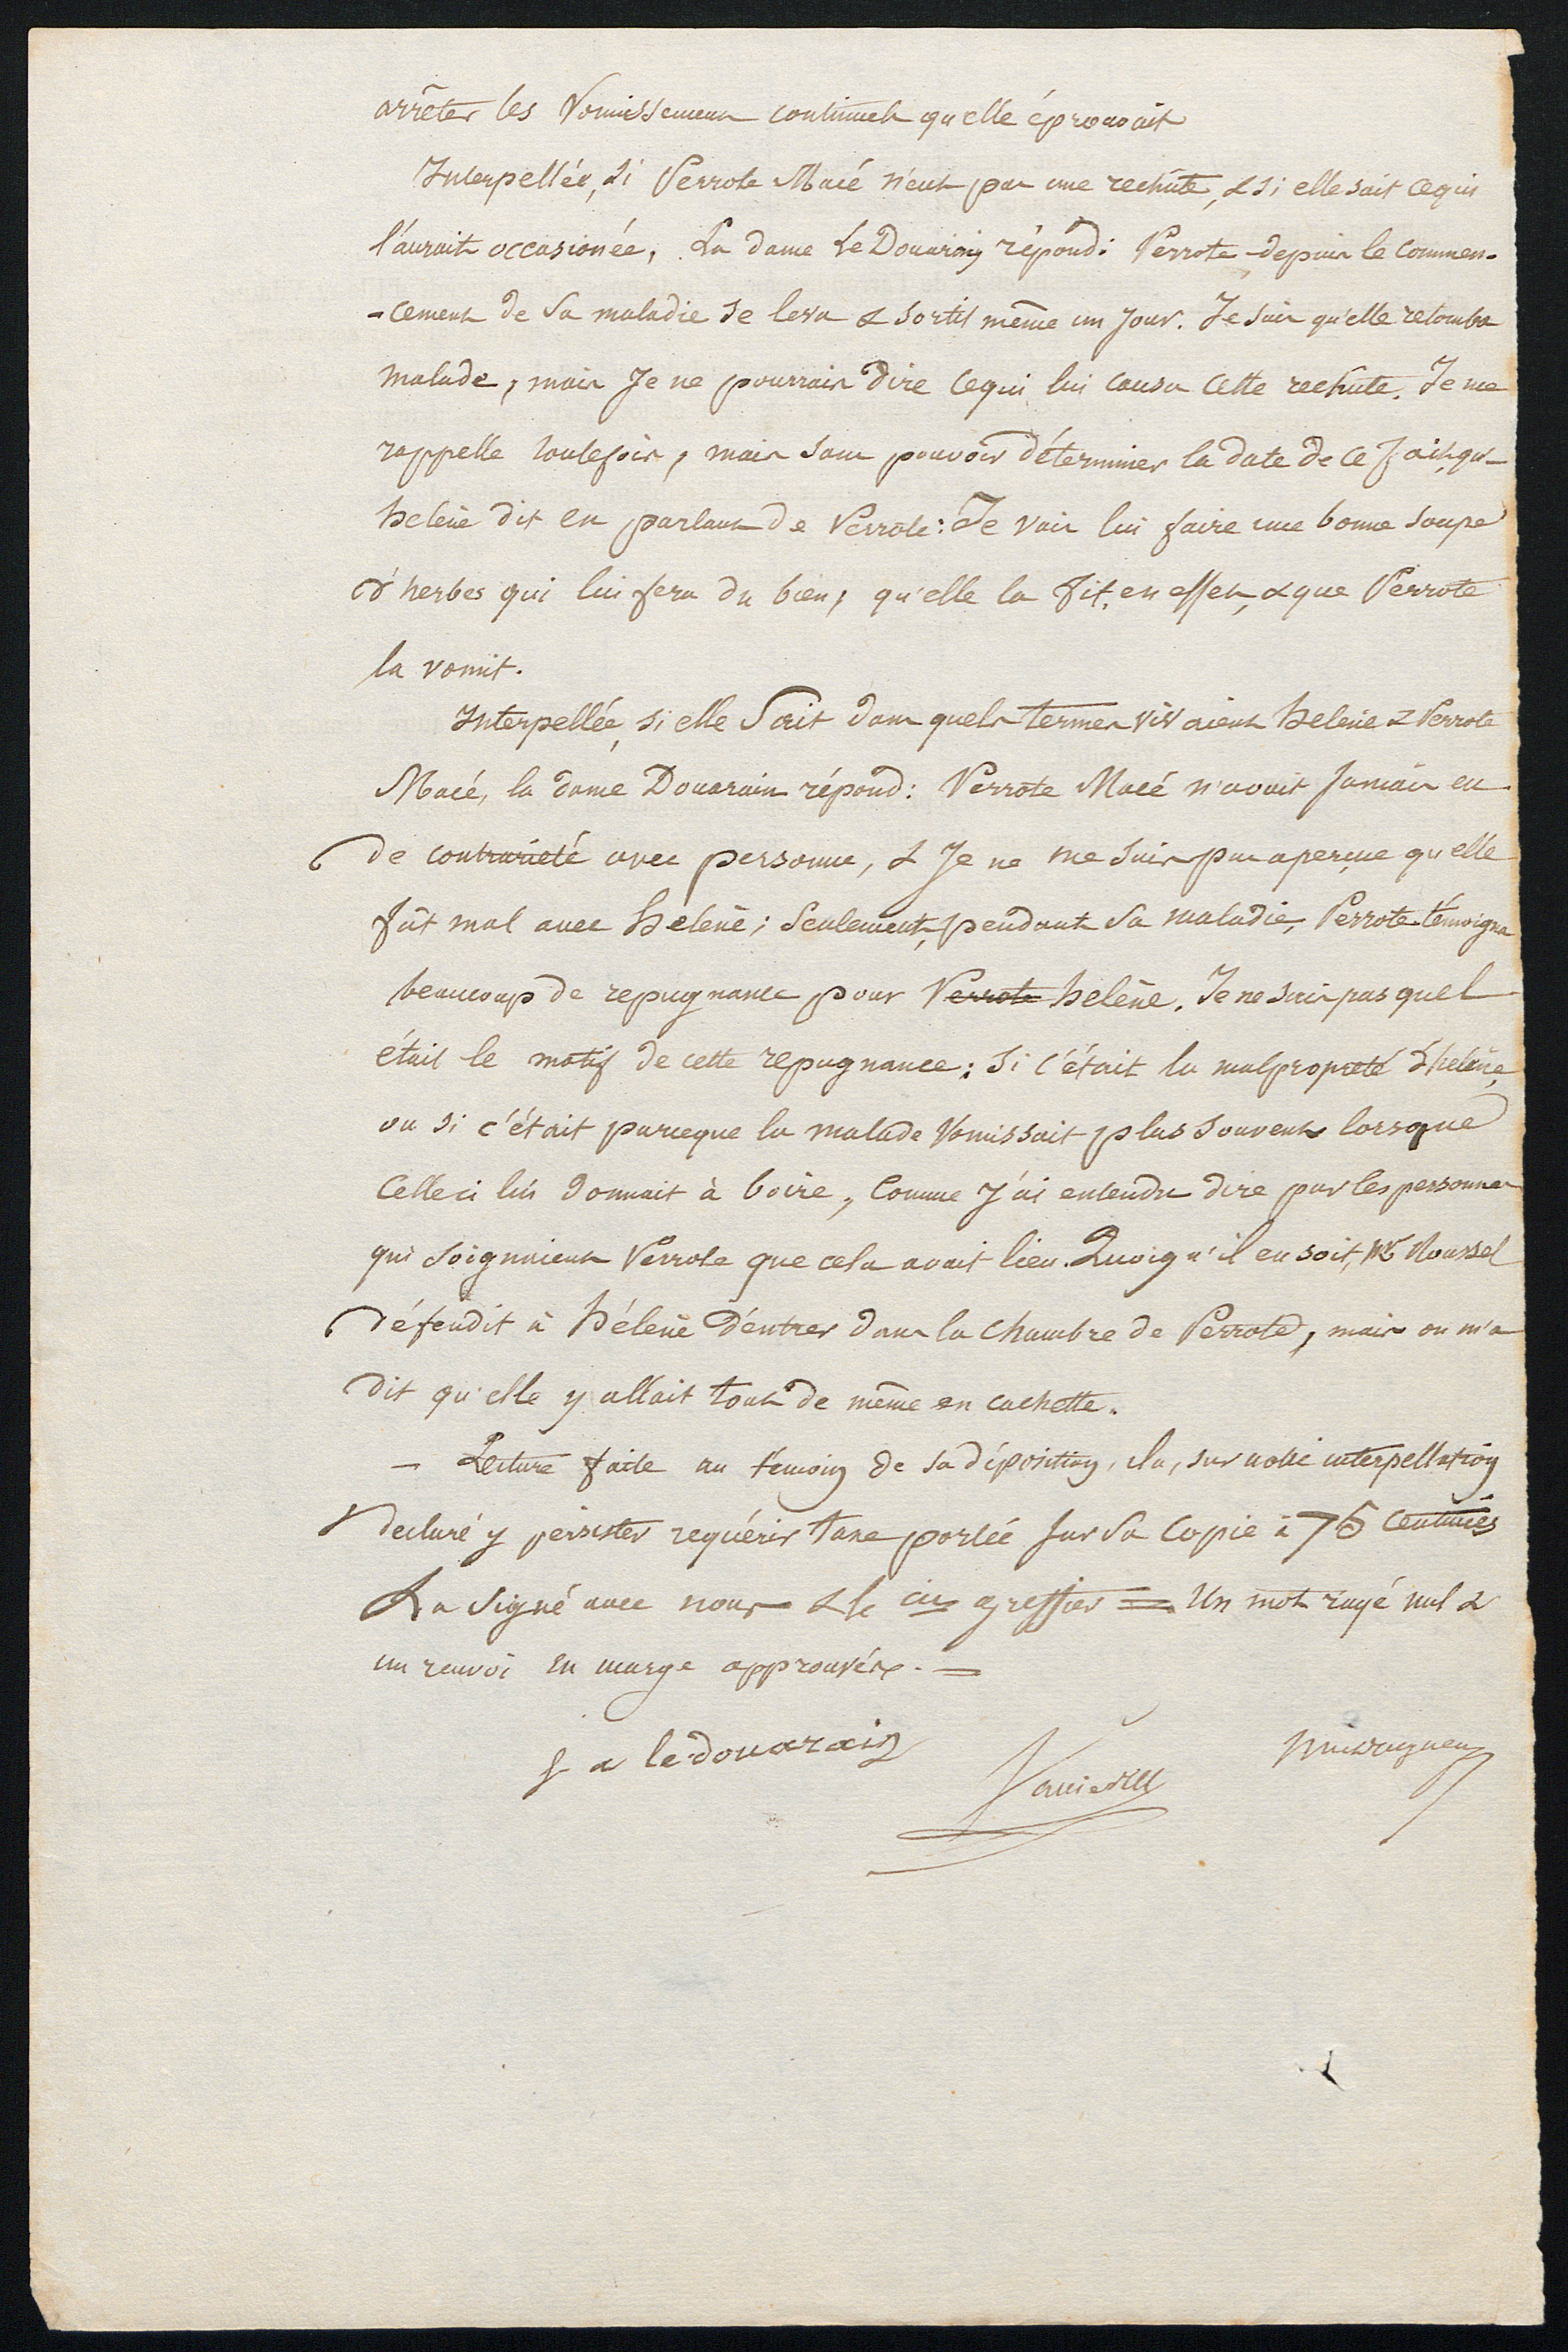 arrêter les Vomissemens continuels qu'elle éprouvait
Interpellée, si Perrote Macé n'eut pas une rechûte, & si elle sait cequi
l'aurait occasionée, La dame Le Douarain répond: Perrote depuis le commen-
-cement de Sa maladie se leva & sortit même un jour. Je sais qu'elle retomba
malade, mais Je ne pourrais dire cequi lui causa cette rechute. Je me
rappelle toutefois, mais sans pouvoir déterminer la date de ce fait, qu'
helène dit en parlant de Perrote: Je vais lui faire une bonne soupe
d'herbes qui lui fera du bien, qu'elle la fit, en effet, & que Perrote
la vomit.
Interpellée, si elle Sait dans quels termes vivaient helène & Perrote
Macé, la dame Douarain répond: Perrote Macé n'avait jamais eu
de contrariété avec personne, & Je ne me suis pas aperçue qu'elle
fût mal avec helène; Seulement, pendant Sa maladie, Perrote témoigna
beaucoup de repugnance pour Perrote helène. Je ne sais pas quel
était le motif de cette repugnance: Si c'était la malpropreté d'helène,
ou si c'était parceque la malade Vomissait plus souvent lorsque
Celleci lui donnait à boire, Comme J'ai entendu dire par les personnes
qui soignaient Perrote que cela avait lieu. Quoiqu'il en soit, Mr Roussel
défendit à hélène d'entrer dans la chambre de Perrote, mais on m'a
dit qu'elle y allait tout de même en cachette.
- Lecture faite au témoin de sa déposition, il a, sur notre interpellation
declaré y persister requérir taxe portée sur Sa Copie à 75 Centimes
& a signé avec nous & le cis greffier = Un mot rayé nul &
un renvoi en marge approuvés. =
le douarain